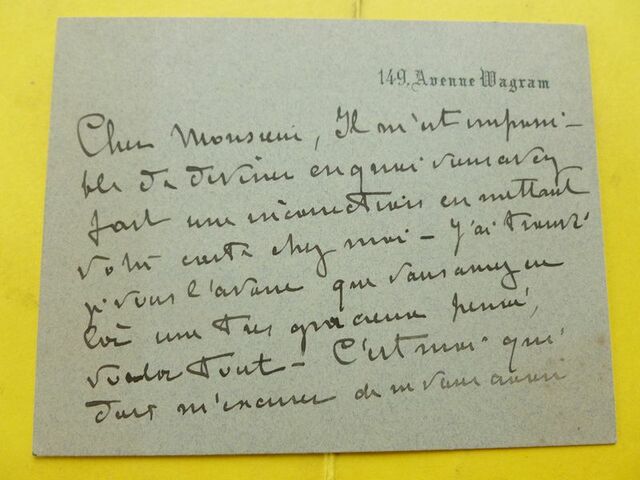 149, Avenue Wagram
Cher Monsieur, Il m'est impossi-
ble de deviner en quoi vous avez
fait une incorrection en mettant
votre carte chez moi - J'ai trouvé
je vous l'avoue que vous avez eu
là une très gracieuse pensée,
voilà tout - C'est moi qui
dois m'excuser de ne vous avoir